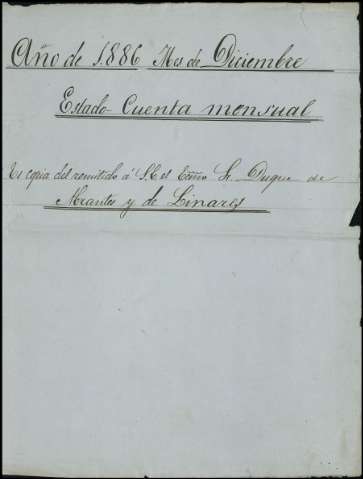 Año de 1.886 Mes de Diciembre
Estado-Cuenta mensual
Es copia del remitido á S.E. el Exmo Sr. Duque de
Abrantes y de Linares